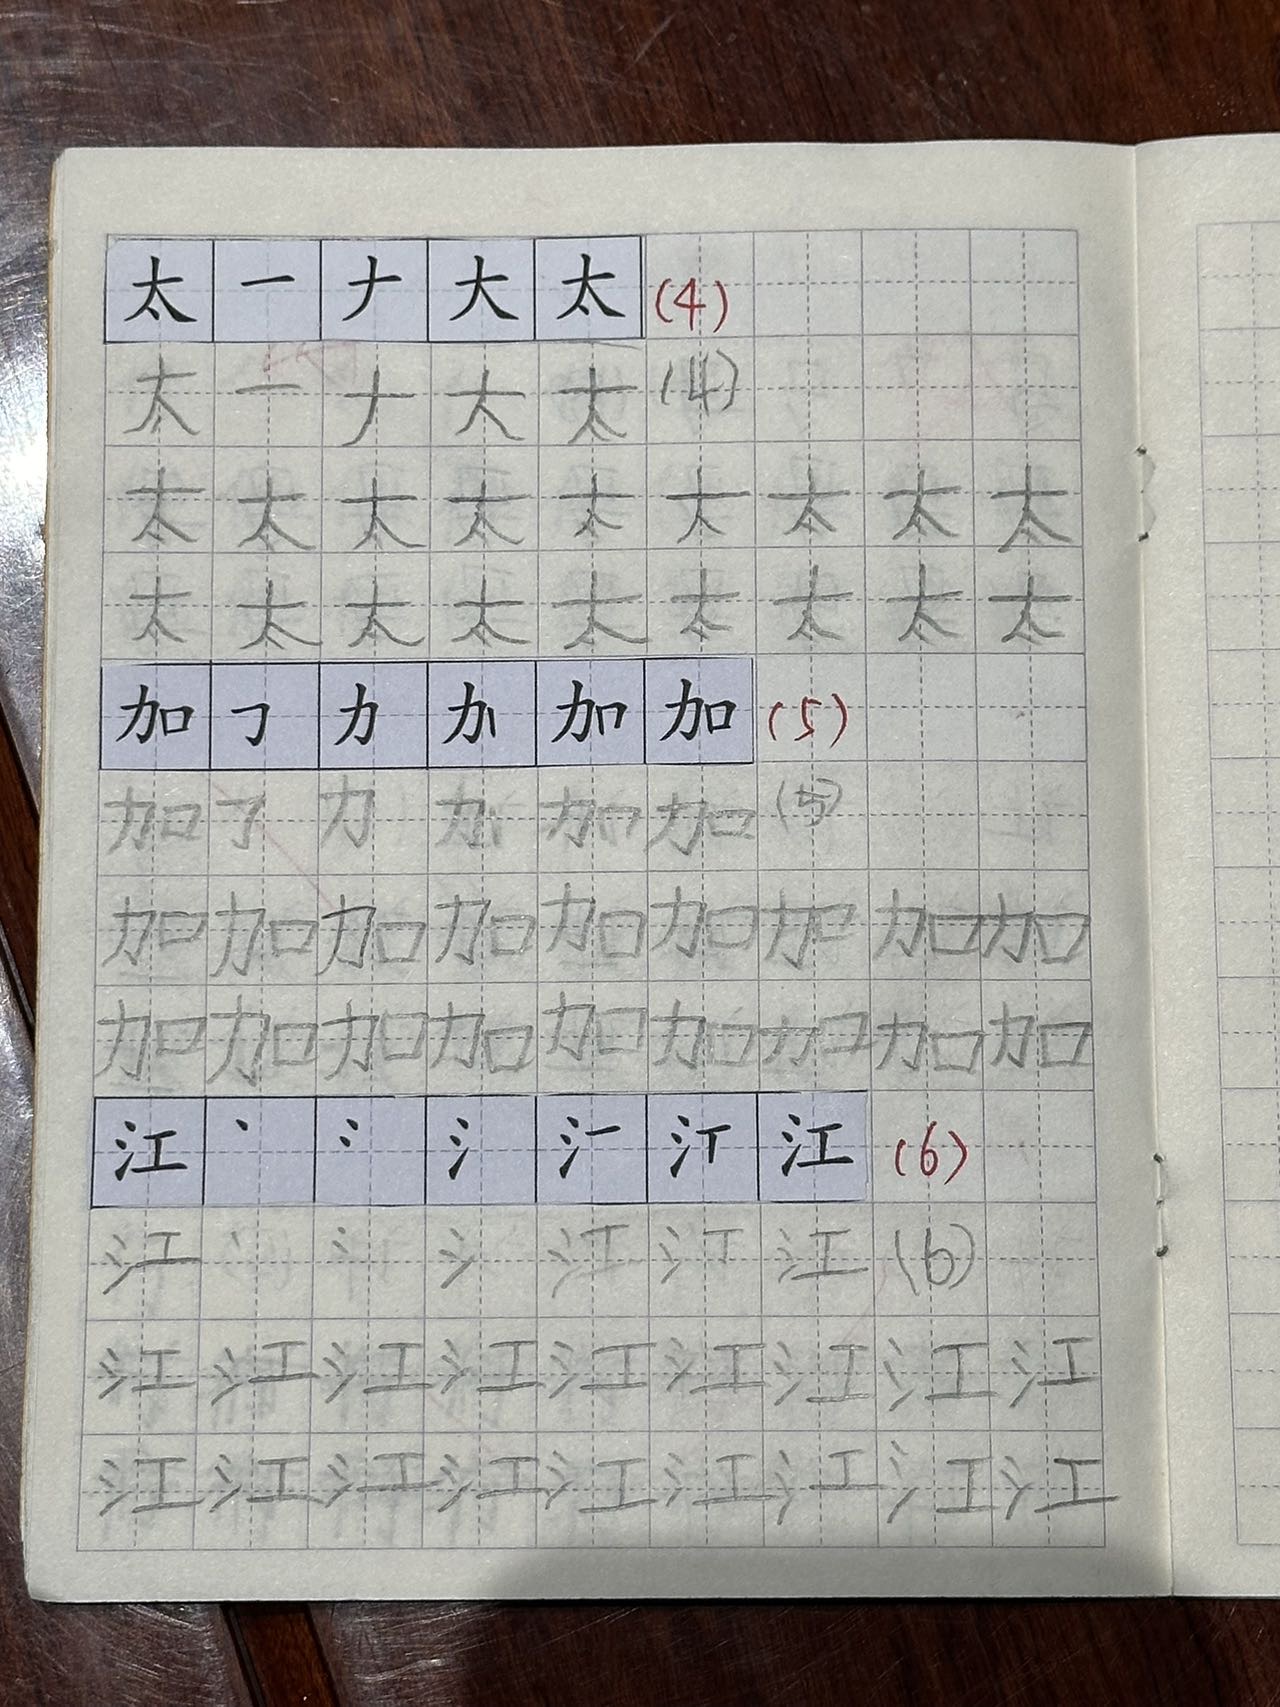 太 一 ナ 大 太 (4)
太 一 ナ 大 太 (4)
太 太 太 太 太 太 太 太 太
太 太 太 太 太 太 太 太 太
加 ㇆ 力 加 加 (5)
加 力 加 加 (5)
加 加 加 加 加 加 加 加 加
加 加 加 加 加 加 加 加 加
江 丶 冫 氵 江 (6)
江 丶 冫 氵 江 (6)
江 江 江 江 江 江 江 江 江
江 江 江 江 江 江 江 江 江